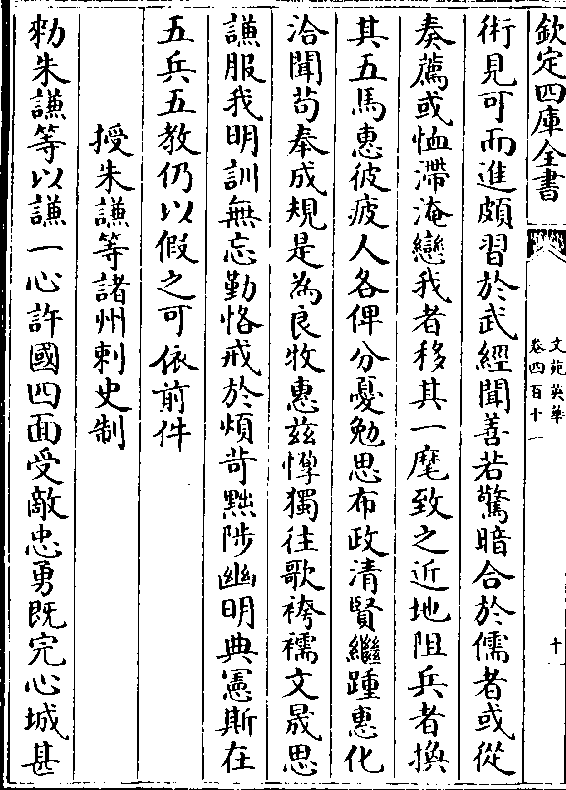 欽定四庫全書
文苑英華
卷四百十一
十
術見可而進頗習於武經聞善若驚暗合於儒者或從
奏薦或恤滯淹戀我者移其一麾致之近地阻兵者換
其五馬惠彼疲人各俾分憂勉思布政清賢繼踵惠化
洽聞苟奉成規是為良牧惠兹惸獨往歌袴襦文晟思
謙服我明訓無忘勤恪戒於煩苛黜陟幽明典憲斯在
五兵五教仍以假之可依前件
授朱謙等諸州刺史制
勑朱謙等以謙一心許國四面受敵忠勇既完心城甚